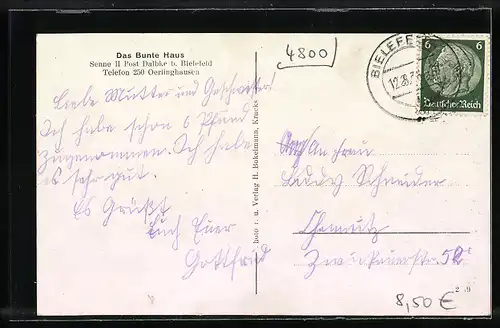 Das Bunte Haus
Senne II Post Dalbke b. Bielefeld
Telefon 250 Oerlinghausen
Liebe Mutter und Geschwister!
Ich habe schon 6 Pfund
zugenommen. Ich habe
es sehr gut.
Es Grüßt
Euch Euer
Gottfried
Photo u. Verlag H. Bokelmann, Kracks
4800
BIELEFE
12.
6 6
Deutsches Reich
An Frau
Schneider
Chemnitz
Zwickauerstr. 52
8,50 €